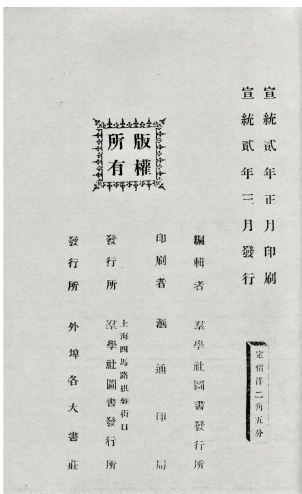 宣統貳年正月印刷
宣統貳年三月發行
定價洋二角五分
版權所有
編輯者 羣學社圖書發行所
印刷者 滙通印局
上海四馬路棋盤街口
發行所 羣學社圖書發行所
發行所 外埠各大書莊